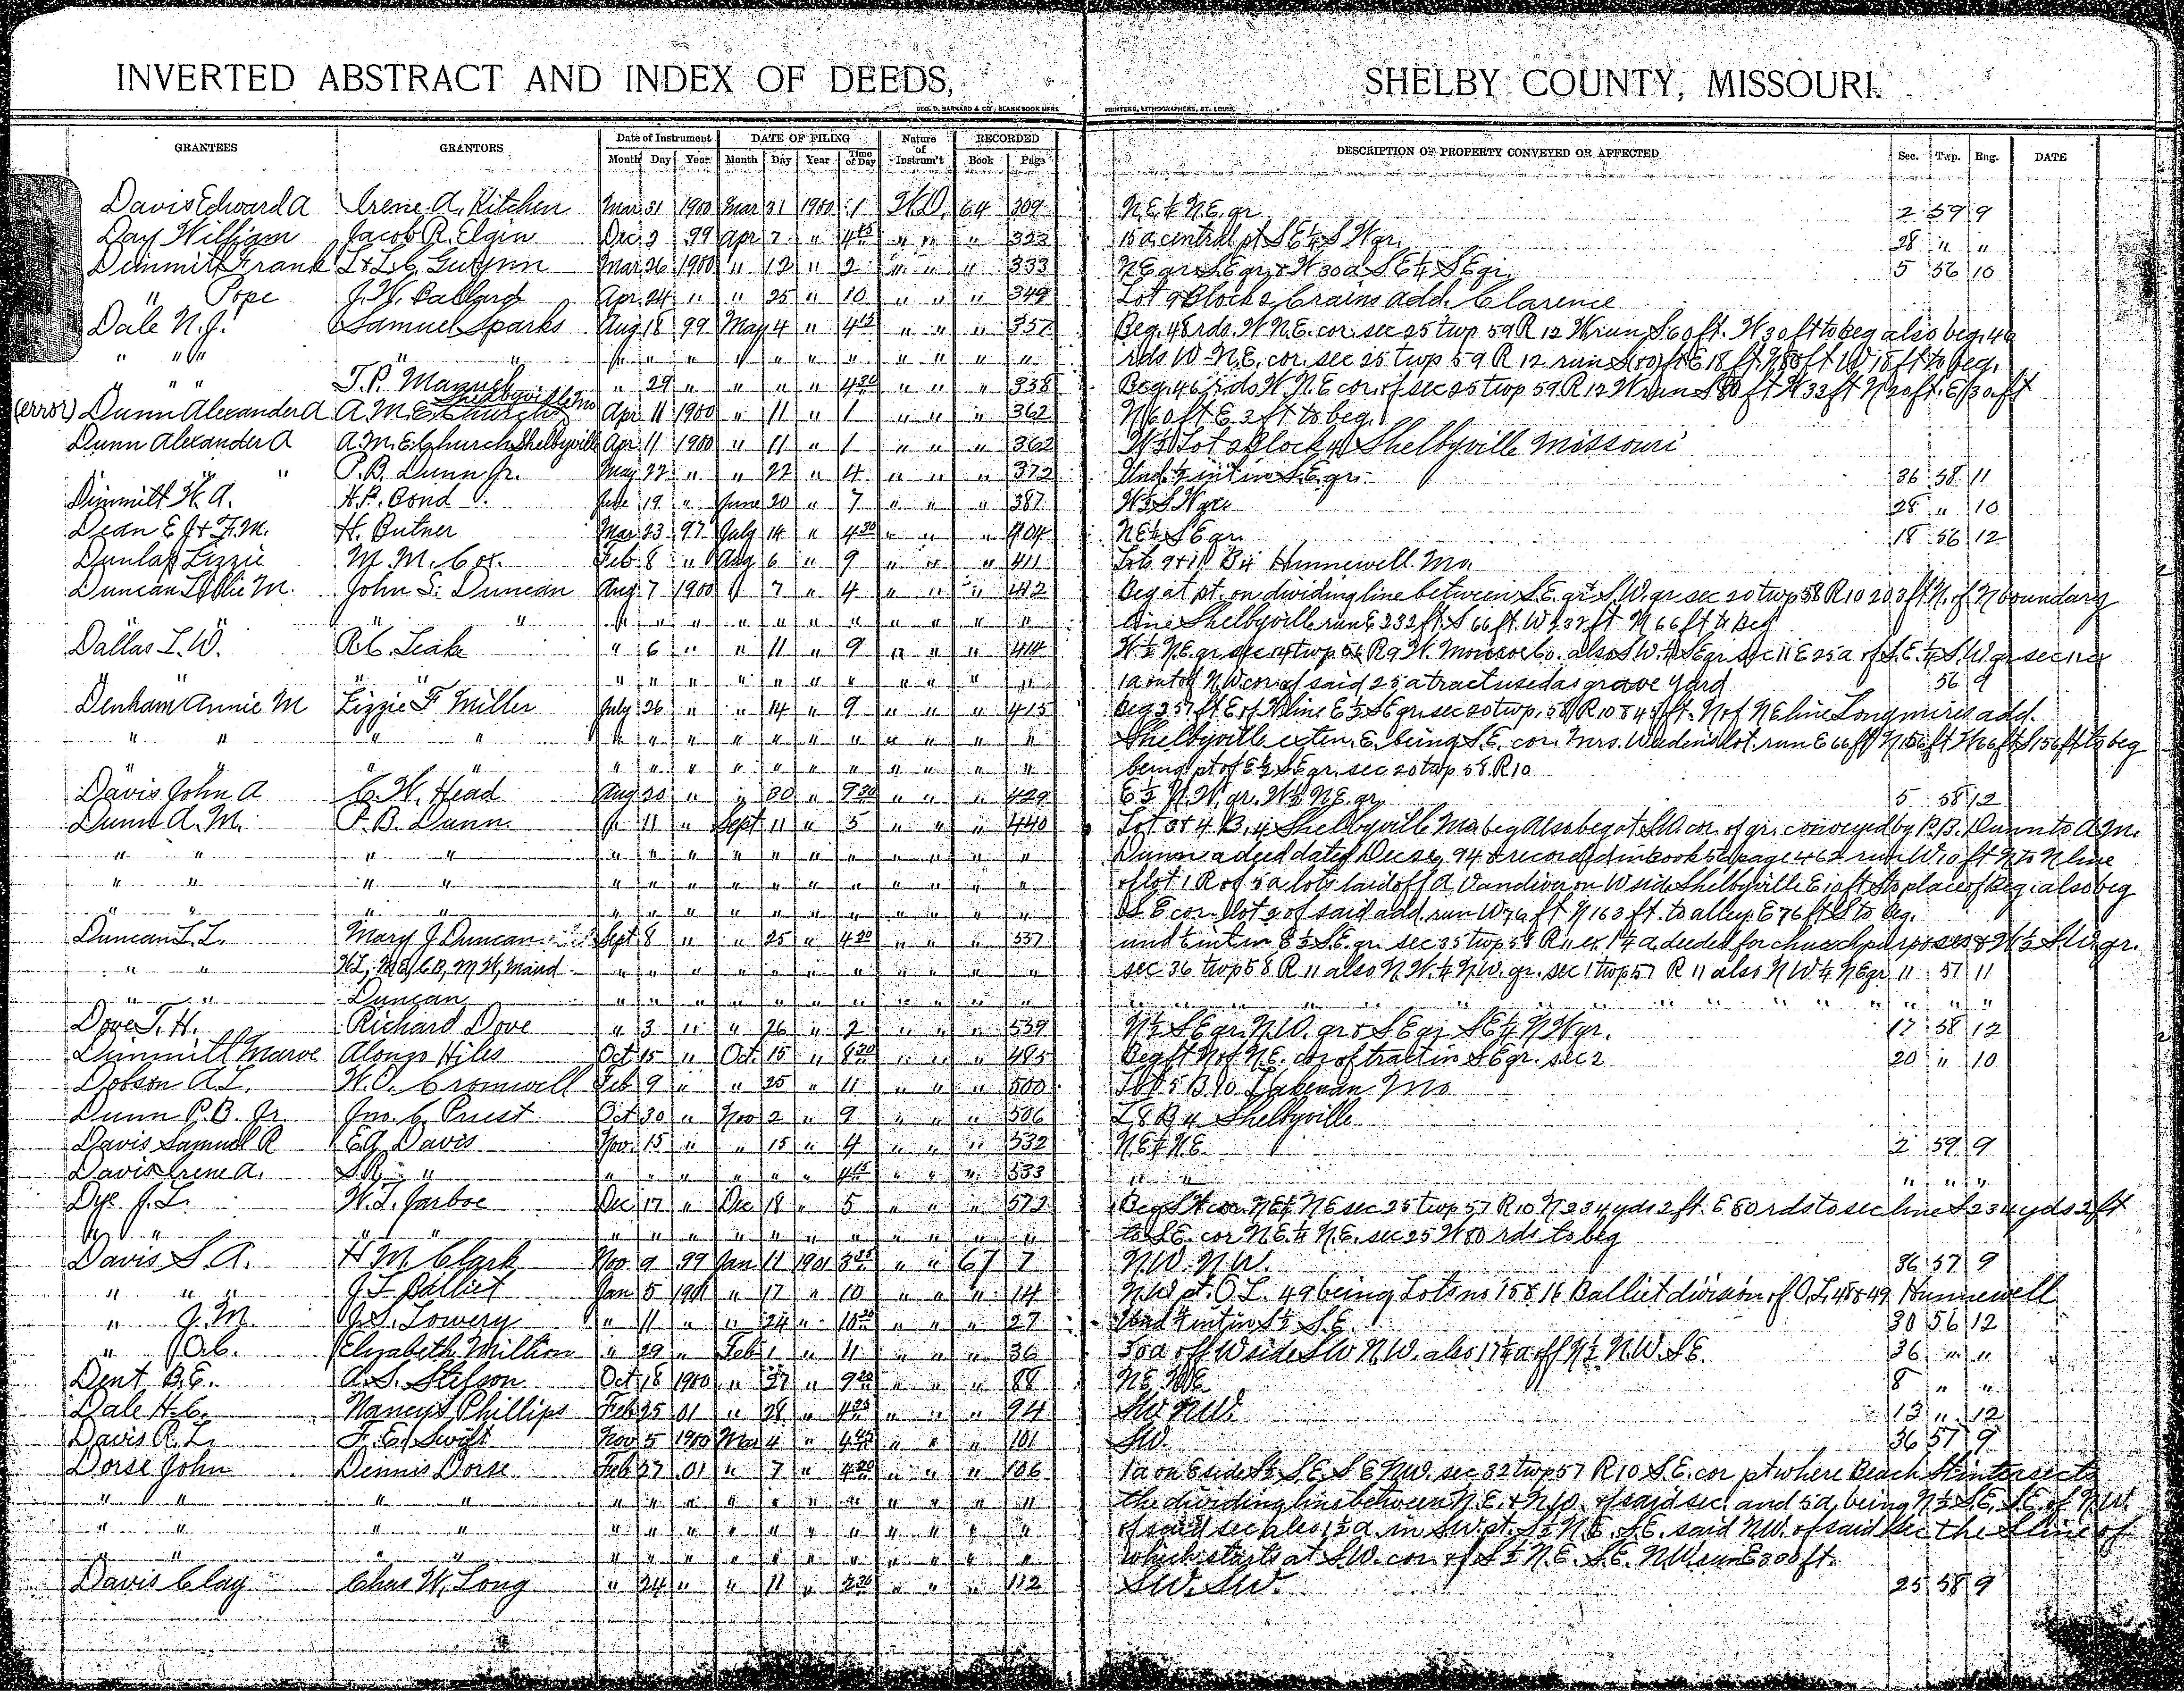 INVERTED ABSTRACT AND INDEX OF DEEDS, SHELBY COUNTY, MISSOURI.
GEO. D. BARNARD & CO., BLANK BOOK MFRS. PRINTERS, LITHOGRAPHERS, ST. LOUIS.
GRANTEES GRANTORS Date of Instrument DATE OF FILING Nature of Instrum't RECORDED DESCRIPTION OF PROPERTY CONVEYED OR AFFECTED Sec. Twp. Rng. DATE
Month Day Year Month Day Year Time of Day Book Page
Davis Edward A Irene A. Kitchen Mar 31 1900 Mar 31 1900 1 W.D. 64 309 N.E. ¼ N.E. qr 2 59 9
Day William Jacob R. Elgin Dec 3 99 Apr 7 " 4 15 " " " 323 15 a central pt S E ¼ S W qr. 28 " "
Dimmitt Frank Mar 26 1900 " 12 " 2 " " " 333 N E qr S E qr & W 30 a S E ¼ S E qr. 5 56 10
" Pope J. W. Ballard Apr 24 " " 25 " 10 " " " 349 Lot 9 Block 2 Crains add. Clarence
Dale N. J. Samuel Sparks Aug 18 99 May 4 " 4 15 " " " 357 Beg. 48 rds. W N.E. cor. sec 25 twp 59 R 12 W run S 60 ft. W 30 ft to beg also beg. 46
" " " " " " " " " " " " " " " " rds W N.E. cor. sec 25 twp 59 R 12 run S 80 ft E 18 ft N 80 ft W 18 ft to beg.
" " " T. P. Manuel " 29 " " " " 4 30 " " " 358 Beg. 46 rds W N E cor. of sec 25 twp 59 R 12 W run S 80 ft W 33 ft N 20 ft. E 30 ft
(error) Dunn Alexander A A. M. E. Church Shelbyville Mo Apr 11 1900 " 11 " 1 " " " 362 N 60 ft E 3 ft to beg.
Dunn Alexander A A. M. E. Church Shelbyville Apr 11 1900 " 11 " 1 " " " 362 W ½ Lot 2 Block 4 Shelbyville Missouri
" " P. B. Dunn Jr. May 22 " " 22 " 4 " " " 372 Und. ½ int in S.E. qr. 36 58 11
Dimmitt W. A. H. P. Bond June 19 " June 20 " 7 " " " 387 W ½ S W qr. 28 " 10
Dean E J & F. M. H. Butner Mar 23 97 July 14 " 4 30 " " " 404 N E ¼ S E qr. 18 56 12
Dunlap Lizzie M. M. Cox. Feb 8 " Aug 6 " 9 " " " 411 Lots 9 & 11 B 4 Hunnewell. Mo.
Duncan Lillie M. John S. Duncan Aug 7 1900 " 7 " 4 " " " 412 Beg at pt. on dividing line between S. E. qr & S.W. qr sec 20 twp 58 R 10 203 ft N. of N boundary
" " " " " " " " " " " " " " " line Shelbyville run E 232 ft. S 66 ft. W 232 ft N 66 ft to beg
Dallas L. W. R. C. Leake " 6 " " 11 " 9 " " " 414 W ½ N.E. qr sec 14 twp 56 R 9 W. Monroe Co. also S W. ¼ S E qr sec 11 E 25 a of S. E. ¼ S. W qr sec 11 ex
" " " " " " " " " " " " " " 1 a out of N W cor. of said 25 a tract used as grave yard 56 9
Denham Annie M Lizzie F Miller July 26 " " 14 " 9 " " " 415 Beg 357 ft E of W line E ½ S E qr. sec 20 twp. 58 R 10 845 ft. N of N E line Longmires add.
" " " " " " " " " " " " " " " Shelbyville exten. E. being S. E. cor. Mrs. lot. run E 66 ft N 156 ft W 66 ft S 156 ft to beg
" " " " " " " " " " " " " " " being pt of E ½ S E qr. sec 20 twp 58 R10
Davis John A C. H. Head Aug 20 " " 30 " 9 30 " " " 429 E ½ N. W. qr. W ½ N E. qr. 5 58 12
Dunn A. M. P. B. Dunn " 11 " Sept 11 " 5 " " " 440 Lot 3 & 4 B. 4 Shelbyville Mo beg Also beg at S.W. cor. of gr. conveyed by P. B. Dunn to A M.
" " " " " " " " " " " " " " " Dunn a deed dated Dec 29 94 & recorded in book 52 page 462 run W 10 ft N to N line
" " " " " " " " " " " " " " " of lot 1 R of 5 a lots laid off A Vandiver on W side Shelbyville E 10 ft S to place of beg; also beg
" " " " " " " " " " " " " " " S. E cor. lot 2 of said add. run W 76 ft N 163 ft. to alley E 76 ft S to beg.
Duncan L. L. Mary J Duncan Sept 8 " " 25 " 4 30 " " " 537 und int in E ½ S. E. qr. sec 35 twp 58 R 11 ex 1 ¼ a. deeded for church purposes & W ½ S. W. qr.
" " W. L, M E, C B, M W, Maud " " " " " " " " " " " sec 36 twp 58 R 11 also N. W. ¼ N.W. qr. sec 1 twp 57 R 11 also N W ¼ N E qr. 11 57 11
" " Duncan " " " " " " " " " " " " " " " " " " " " " " "
Dove T. H. Richard Dove " 3 " " 26 " 2 " " " 539 N ½ S E qr. N. W. qr & S E qr S E ¼ N W qr. 17 58 12
Dimmitt Marve Alonzo Hiles Oct 15 " Oct. 15 " 8 30 " " " 485 Beg ft N of N E. cor of tract in S E qr. sec 2 20 " 10
Dobson A. L. W. O. Cromwell Feb 9 " " 25 " 11 " " " 500 Lot 5 B 10 Lakenan Mo
Dunn P. B. Jr. Jno. C Priest Oct 30 " Nov 2 " 9 " " " 506 L 8 B 4 Shelbyville
Davis Samuel R E. A. Davis Nov. 15 " " 15 " 4 " " " 532 N E ¼ N. E. 2 59 9
Davis Irene A. S. R. " " " " " " " 4 15 " " " 533 " " " " "
Dye J. L. W. L. Jarboe Dec 17 " Dec 18 " 5 " " " 572 Beg S W cor. N E ¼ N E sec 25 twp 57 R 10 N 234 yds 2 ft. E 80 rds to sec line S 234 yds 2 ft
" " " " " " " " " " " " " " to S E. cor N. E. ¼ N. E. sec 25 W 80 rds to beg
Davis S. A. H M. Clark Nov 9 99 Jan 11 1901 " " 67 7 N.W. N.W. 36 57 9
" " " J L Balliet Jan 5 1901 " 17 " 10 " " " 14 N W pt. O. L. 49 being Lots no 15 & 16 Balliet division of O. L. 48 & 49 Hunnewell
" J. M. J. S. Lowery " 11 " " 24 " 10 30 " " " 27 Und ¼ int in S ½ S. E. 30 56 12
" Elizabeth Million " 29 " Feb 1 " 11 " " " 36 off W side S W N. W. also 17 ½ a off N ½ N. W. S E. 36 " "
Dent B. E. A. S. Stilson Oct 18 1900 " 27 " 9 30 " " " 88 N E 8 " "
Dale H. C. Nancy S Phillips Feb 25 01 " 28 " " " " 94 S W N W. 13 " 12
Davis R. L. F. E. Swift Nov 5 1900 Mar 4 " 4 45 " " " 101 S W. 36 57 9
Dorse John Dennis Dorse Feb 27 01 " 7 " 4 30 " " " 106 1 a on E side S ½ S. E. S E N W. sec 32 twp 57 R 10 S. E. cor pt where Beach St intersects
" " " " " " " " " " " " " " " the dividing line between N. E. & N W. of said sec. and 5 a. being N ½ S. E. S. E. of N W.
" " " " " " " " " " " " " " " of said sec also 1 ½ a. in S W. pt. S ½ N. E. S. E. said N W. of said sec the S line of
" " " " " " " " " " " " " " " which starts at S W. cor. of S ½ N. E. S. E. N W run E 300 ft.
Davis Clay Chas W. Long " 24 " " 11 " 2 30 " " " 112 S W. S W. 25 58 9